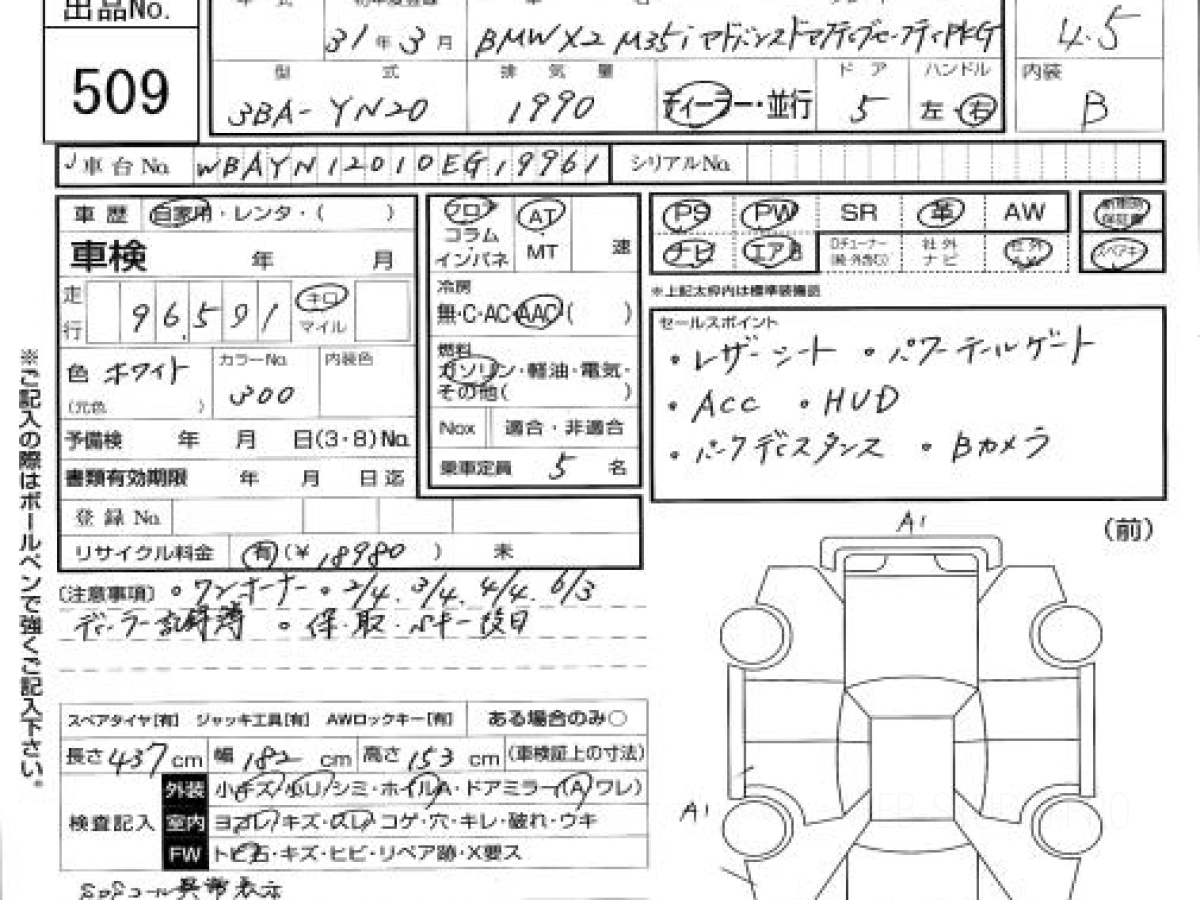 出品No.
509
31年3月
BMW X2 M35i アドバンスドアクティブセーフティPKG
4.5
型式
排気量
ドア
ハンドル
内装
3BA-YN20
1990
ディーラー・並行
5
左・右
B
車台No. WBAYN12010EG19961
シリアルNo.
車歴 自家用・レンタ・( )
車検 年 月
走行 96,591 キロ マイル
色 ホワイト
(元色 )
カラーNo. 300
内装色
予備検 年 月 日(3・8)No.
書類有効期限 年 月 日迄
登録No.
リサイクル料金 有(¥18980) 未
フロア
コラム
インパネ
AT
MT
速
冷房
無・C・AC・AAC( )
燃料
ガソリン・軽油・電気・
その他( )
Nox 適合・非適合
乗車定員 5 名
PS PW SR 革 AW
ナビ エアB
社外ナビ
スペアキー
※上記太枠内は標準装備品
セールスポイント
・レザーシート ・パワーテールゲート
・ACC ・HUD
・パークディスタンス ・Bカメラ
※ご記入の際はボールペンで強くご記入下さい。
(注意事項) ・ワンオーナー ・2/4. 3/4. 4/4. 6/3
ディーラー記録簿 ・保・取・Sキー後日
スペアタイヤ[有] ジャッキ工具[有] AWロックキー[有] ある場合のみ○
長さ437cm 幅182cm 高さ153cm (車検証上の寸法)
検査記入
外装 小キズ・小U・シミ・ホイルA・ドアミラー(A)ワレ)
室内 ヨゴレ・キズ・スレ・コゲ・穴・キレ・破れ・ウキ
FW トビ石・キズ・ヒビ・リペア跡・X要ス
SOSコール異常表示
A1
(前)
A1